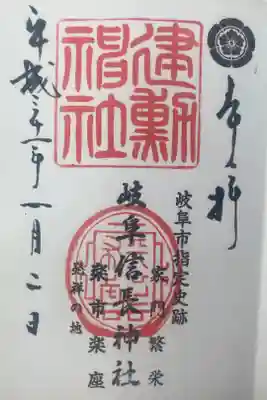 奉拝
岐阜市指定史跡
家門繁栄
建勲神社
岐阜信長神社
楽市楽座
発祥の地
平成三十一年一月二日